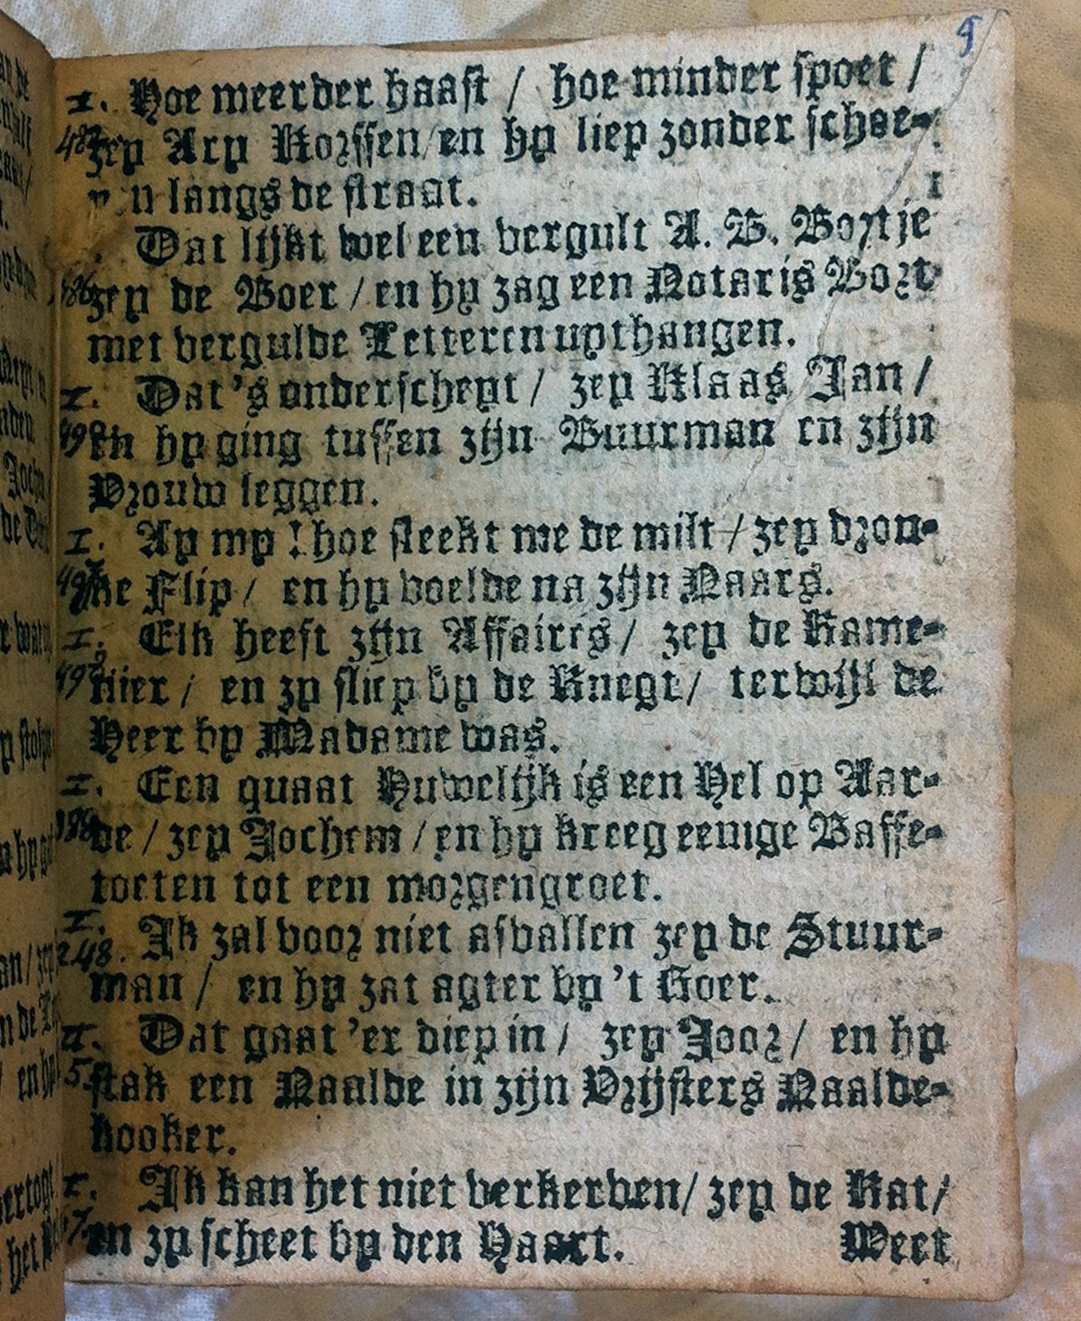 5
1. Hoe meerder haast / hoe minder spoet /
zey Ary Korssen / en hy liep zonder schoe-
langs de straat.
Dat lijkt wel een vergult A. B. Bortje
zey de Boer / en hy zag een Notaris Bort
met vergulde Letteren uythangen.
1. Dat 's onderscheyt / zey Klaas Jan /
en hy ging tussen zijn Buurman en zijn
Vrouw leggen.
1. Ay my ! hoe steekt me de milt / zey dron-
ke Flip / en hy voelde na zijn Naars.
1. Elk heeft zijn Affaires / zey de Kame-
nier / en zy sliep by de Knegt / terwijl de
Heer by Madame was.
1. Een quaat Huwelijk is een Hel op Aar-
de / zey Jochem / en hy kreeg eenige Baffe-
toeten tot een morgengroet.
1.
248. Ik zal voor niet afvallen zey de Stuur-
man / en hy zat agter by 't Roer.
1. Dat gaat 'er diep in / zey Joor / en hy
stak een Naalde in zijn Vrijsters Naalde-
kooker.
1. Ik kan het niet verkerven / zey de Kat /
en zy scheet by den Haart. Weet